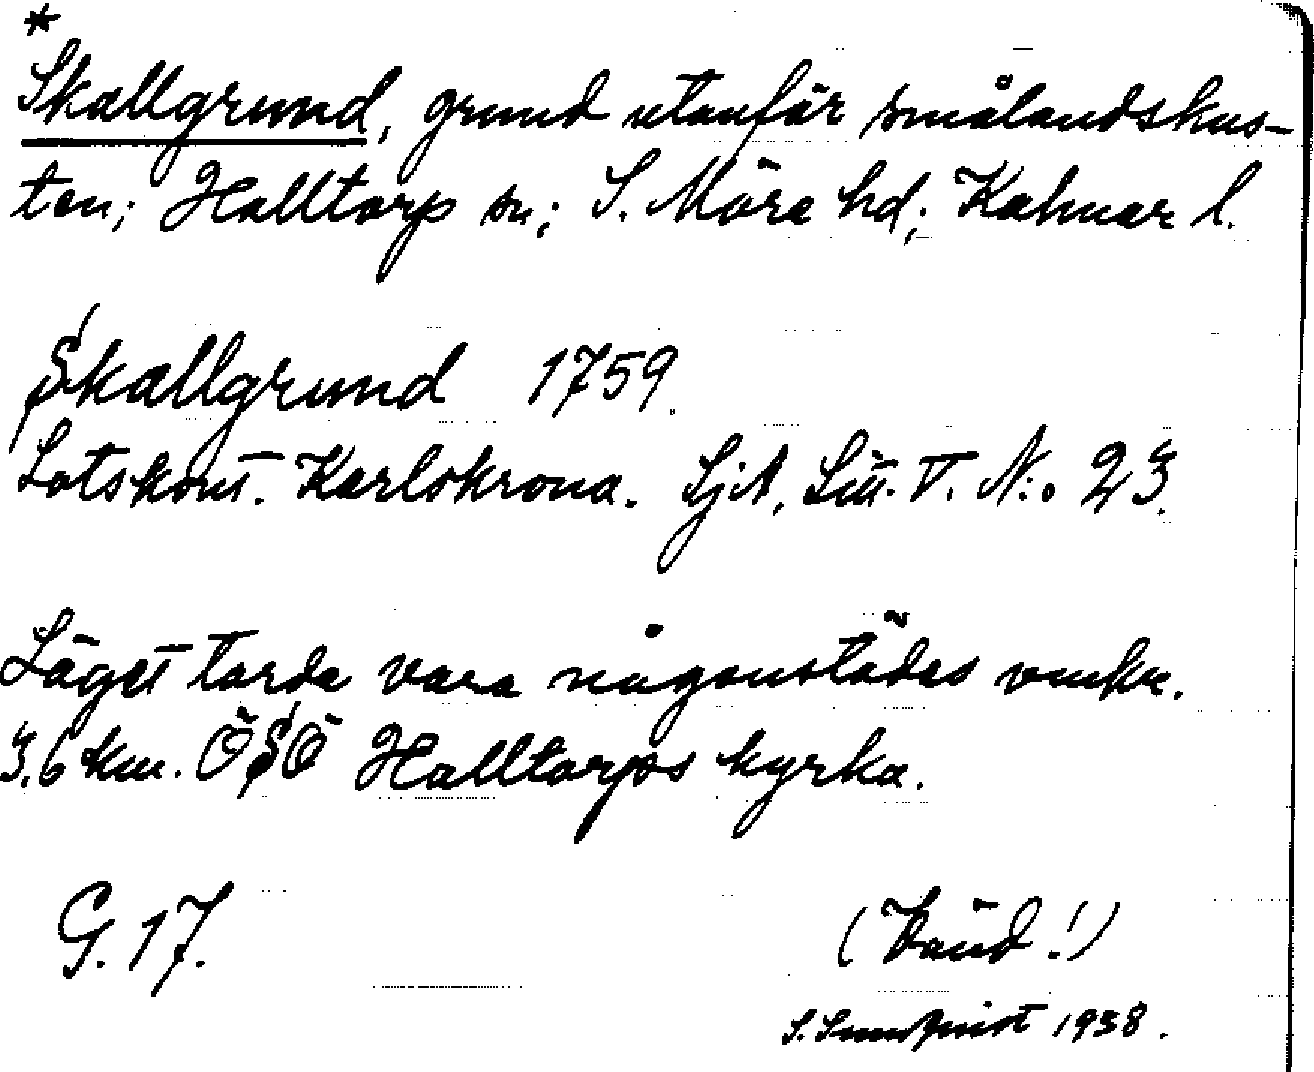 *
Skallgrund, grund utanför smålandskus-
ten; Halltorp sn; S. Möre hd; Kalmar l.
Skallgrund 1759.
Lotskont. Karlskrona. SjA, Litt. V. N:o 23.
Läget torde vara någonstädes omkr.
3,6 km. ÖSÖ Halltorps kyrka.
G. 17.
(Vänd!)
S. Sundquist 1938.